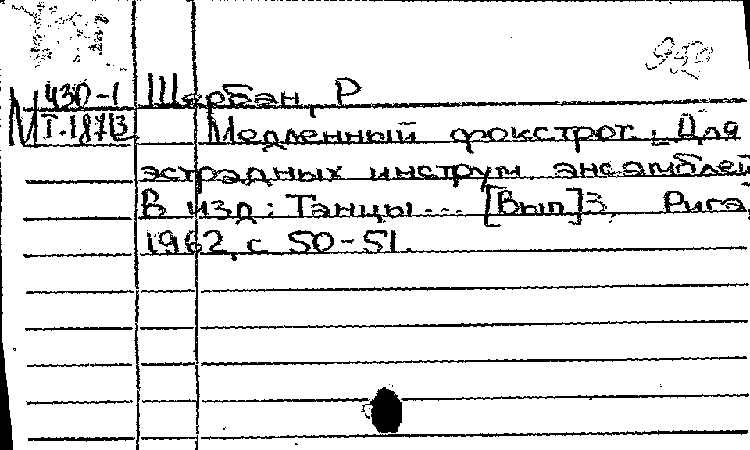 950
М 430-1 Щербан, Р
Т.18713 Медленный фокстрот. [Для
эстрадных инструм. ансамблей
В изд: Танцы... [Вып]3. Рига,
1962, с 50-51.